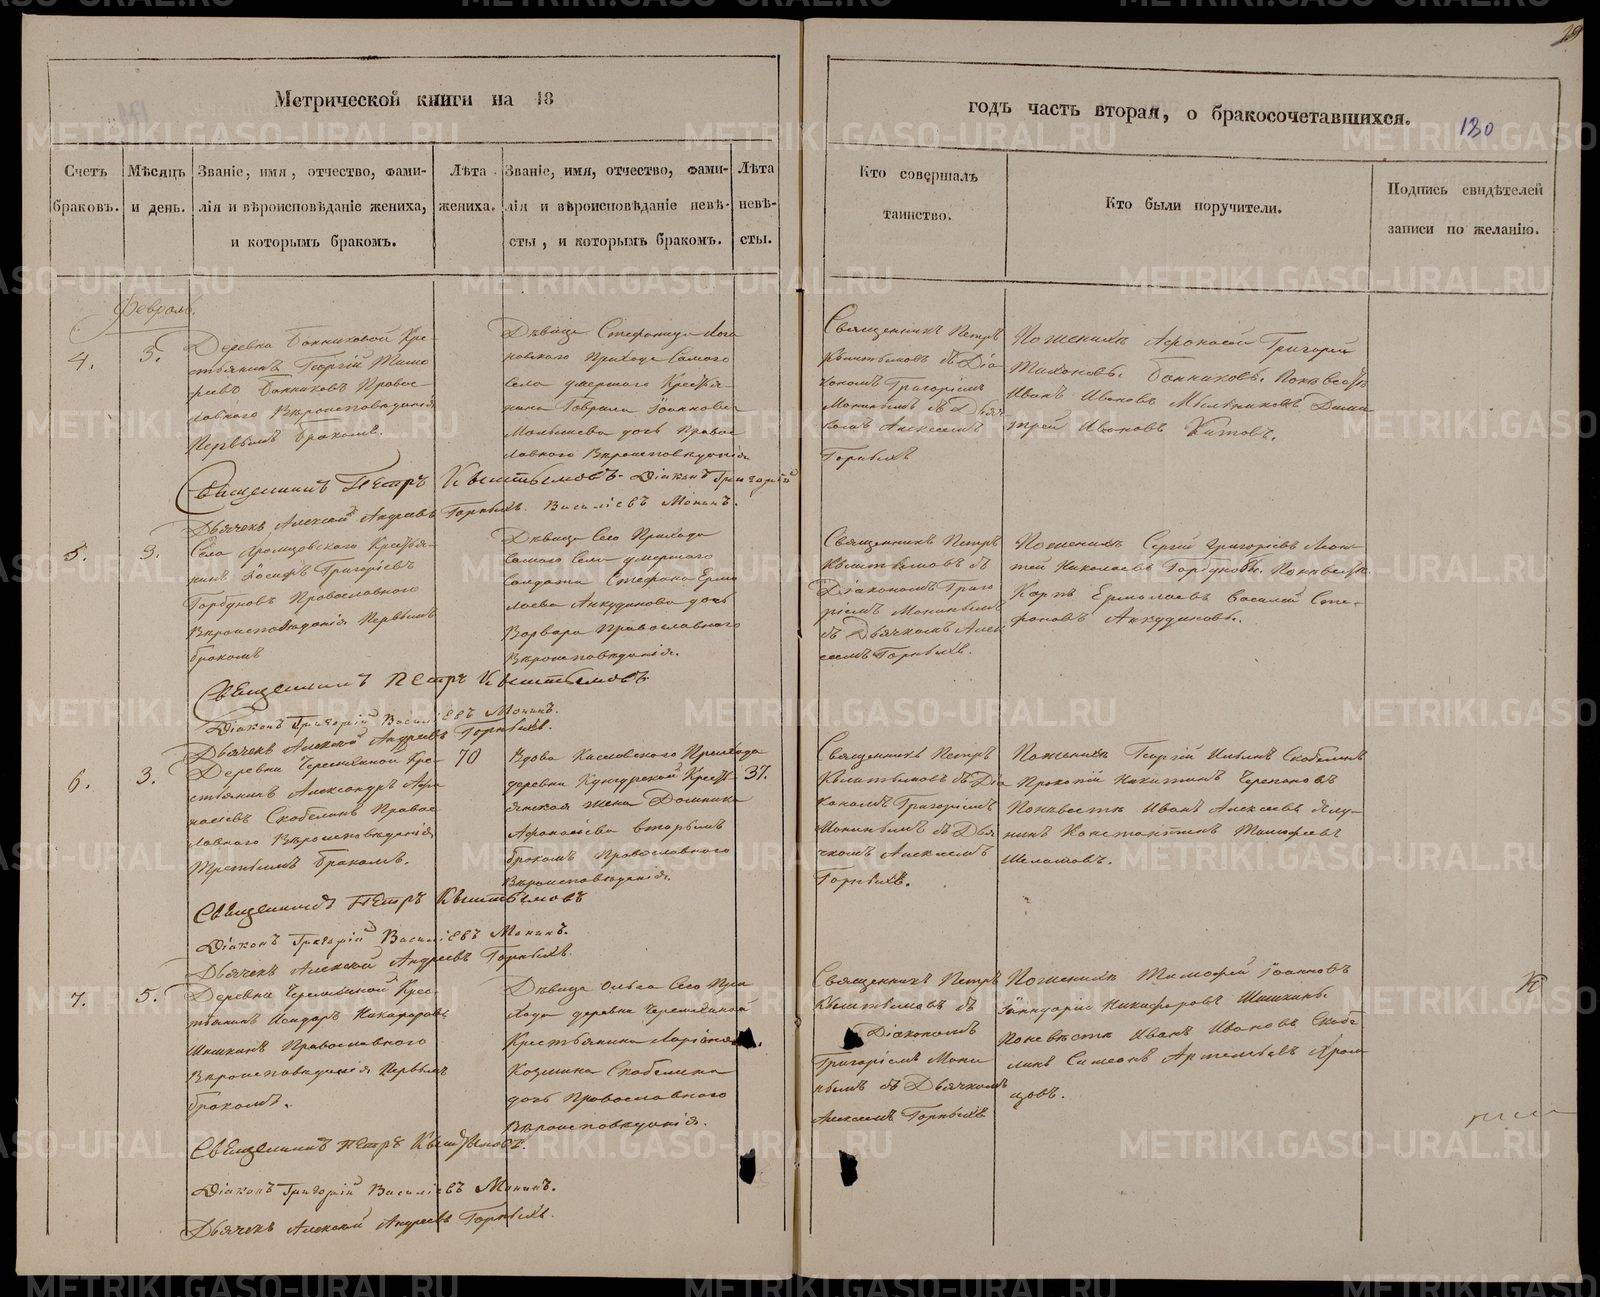 Метрической книги на 18
годъ часть вторая, о бракосочетавшихся.
130
Счетъ браковъ.
Мѣсяцъ и день.
Званіе, имя, отчество, фами-
лія и вѣроисповѣданіе жениха,
и которымъ бракомъ.
Лѣта жениха.
Званіе, имя, отчество, фами-
лія и вѣроисповѣданіе невѣ-
сты, и которымъ бракомъ.
Лѣта невѣ-
сты.
Кто совершалъ
таинство.
Кто были поручители.
Подпись свидѣтелей
записи по желанію.
Февраль.
4.
3.
Деревни Банниковой Кре-
стьянинъ Георгій Тимо
феевъ Банниковъ Право-
славнаго Вѣроисповѣданія
Первымъ бракомъ.
Дѣвица Стефанида
Прихода Самого
Села умершаго Крестья-
нина Гавріила Іоаннова
дочь Право
славнаго Вѣроисповѣданія
Священникъ Петръ
Кыштымовъ съ Діа
кономъ Григоріемъ
Мониным съ Дьяч
комъ Алексеемъ
Горныхъ
По женихѣ Афонасій Григорій
Банниковъ. По невѣстѣ
Иванъ Ивановъ Мыльниковъ Дими
трій Ивановъ Китовъ.
Священникъ Петръ Кыштымовъ. Діаконъ Григорій
Дьячекъ Алексей Андреевъ Горныхъ. Василіевъ Монинъ.
5.
3.
Села Громцовскаго Крестья-
нинъ Іосифъ Григоріевъ
Горбуновъ Православнаго
Вѣроисповѣданія Первымъ
бракомъ
Дѣвица Сего Прихода
Самого Села умершаго
Солдата Стефана Ермо
лаева Анкудинова дочь
Варвара Православнаго
Вѣроисповѣданія.
Священникъ Петръ
Кыштымовъ съ
Діакономъ Григо
ріемъ Мониным
съ Дьячкомъ Алек
сеемъ Горныхъ.
По женихѣ Сергій Григоріевъ Леон
тій Николаевъ Горбуновы. По невѣстѣ
Карпъ Ермолаевъ Василій Сте-
фановъ Анкудиновы.
Священникъ Петръ Кыштымовъ
Діаконъ Григорій Василіевъ Монинъ.
Дьячекъ Алексей Андреевъ Горныхъ.
6.
3.
Деревни Черемхиной Кре-
стьянинъ Александръ Афо
насіевъ Скобелинъ Право
славнаго Вѣроисповѣданія
Третьимъ бракомъ.
70
Вдова Касловскаго Прихода
деревни Кунгурской Кресть
янская жена Домника
Афонасіева вторымъ
бракомъ Православнаго
Вѣроисповѣданія.
37.
Священникъ Петръ
Кыштымовъ съ Діа
кономъ Григоріемъ
Мониным съ Дья
чкомъ Алексеемъ
Горныхъ.
По женихѣ Георгій Скобелинъ
Прокопій Никитинъ Черепановъ
По невѣстѣ Иванъ Алексеевъ
нинъ Константинъ Тимофеевъ
Шеломовъ.
Священникъ Петръ Кыштымовъ
Діаконъ Григорій Василіевъ Монинъ.
Дьячекъ Алексей Андреевъ Горныхъ.
7.
5.
Деревни Черемхиной Крес-
тьянинъ Исидоръ Никифоровъ
Шишкинъ Православнаго
Вѣроисповѣданія Первымъ
бракомъ.
Дѣвица Ольга Сего При
хода деревни Черемхиной
Крестьянина Ларіона
Козмина Скобелина
дочь Православнаго
Вѣроисповѣданія.
Священникъ Петръ
Кыштымовъ съ
Діакономъ
Григоріемъ Мони
ным съ Дьячкомъ
Алексеемъ Горныхъ
По женихѣ Тимофей Іоанновъ
Никифоровъ Шишкины.
По невѣстѣ Иванъ Ивановъ Скобе
линъ Симеонъ Артемьевъ Хром
цовъ.
Священникъ Петръ Кыштымовъ.
Діаконъ Григорій Василіевъ Монинъ.
Дьячекъ Алексей Андреевъ Горныхъ.
METRIKI.GASO-URAL.RU